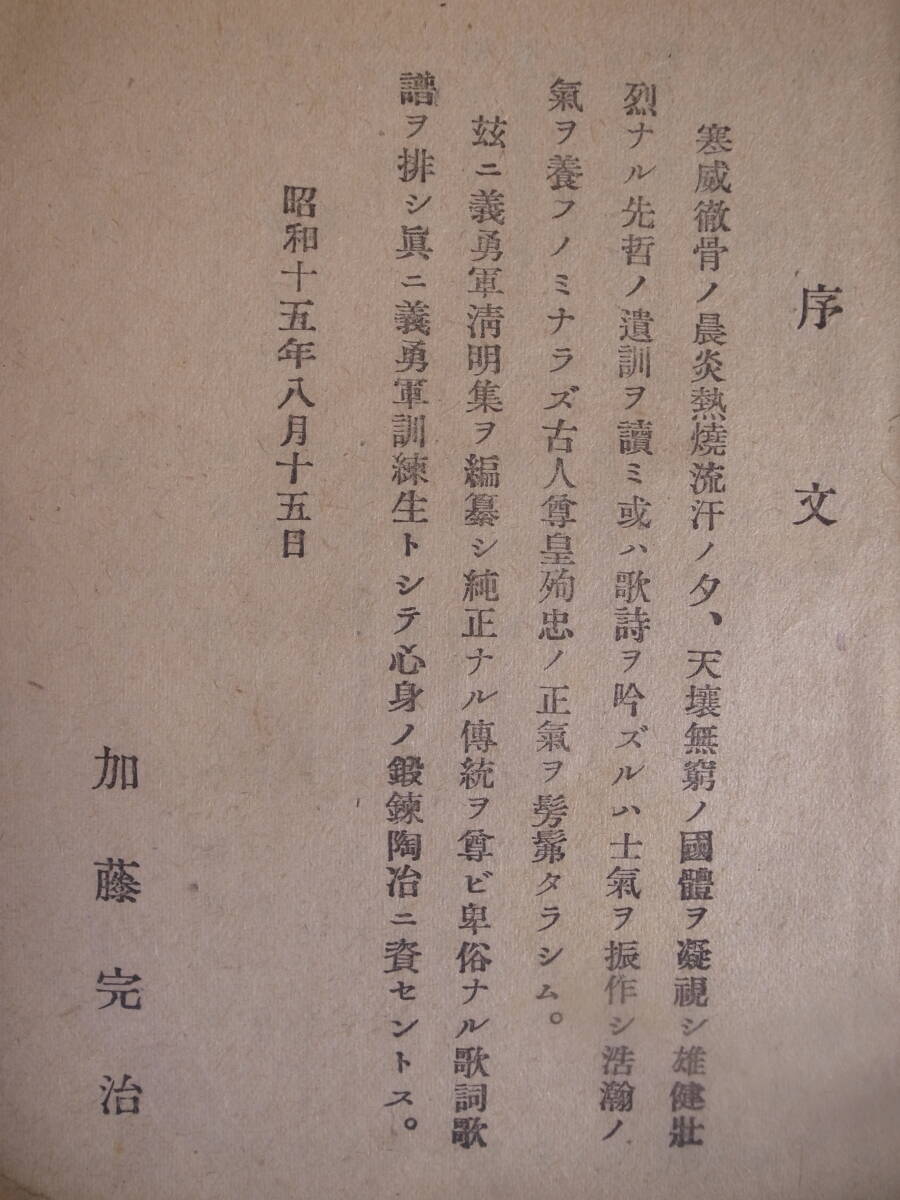 序文
寒威徹骨ノ晨炎熱燒流汗ノ夕、天壤無窮ノ國體ヲ凝視シ雄健壯
烈ナル先哲ノ遺訓ヲ讀ミ或ハ歌詩ヲ吟ズルハ士氣ヲ振作シ浩瀚ノ
氣ヲ養フノミナラズ古人尊皇殉忠ノ正氣ヲ髣髴タラシム。
玆ニ義勇軍淸明集ヲ編纂シ純正ナル傳統ヲ尊ビ卑俗ナル歌詞歌
譜ヲ排シ眞ニ義勇軍訓練生トシテ心身ノ鍛鍊陶冶ニ資セントス。
昭和十五年八月十五日
加藤完治